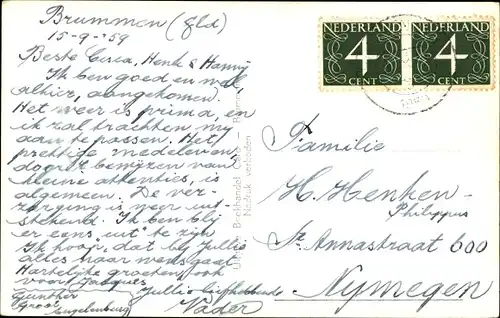 Brummen (Gld)
15-9-'59
Beste Henk & Hanny
Ik ben goed en wel,
alhier, aangekomen.
Het weer is prima, en
ik zal trachten, mij
aan te passen. Het
prettige medeleven,
door 't bewijzen van
kleine attenties, is
algemeen. De ver-
zorging is zeer uit-
stekend. Ik ben blij
er eens, "uit" te zijn
Ik hoop, dat bij jullie
alles naar wens gaat
Hartelijke groeten, ook
voor Jacques
Jullie liefhebbende
Vader
Gunther
Groot
Engelenburg
Nadruk verboden
NEDERLAND
4
CENT
NEDERLAND
4
CENT
Familie
H. Henken-
Philippus
St. Annastraat 600
Nymegen